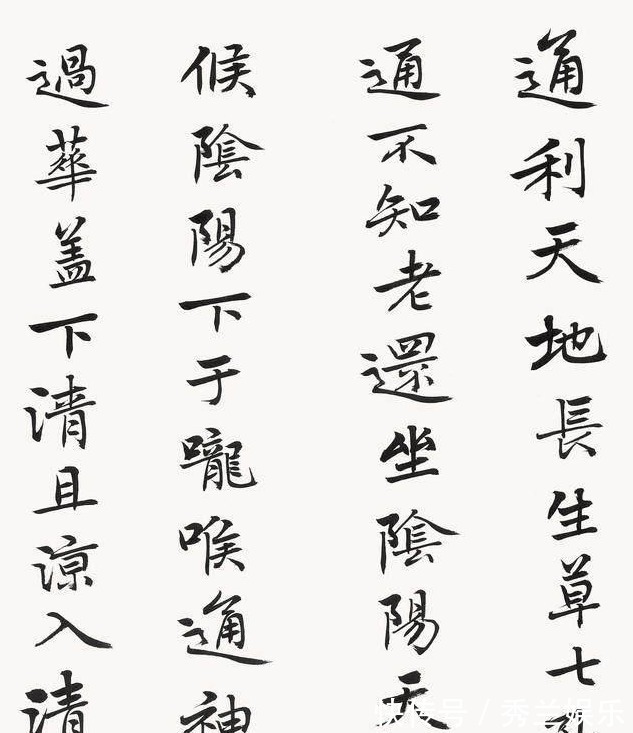 通利天地長生草七孔
通不知老還坐陰陽天
候陰陽下于嚨喉通神
過華盖下清且涼入清
快传号 / 秀兰娱乐